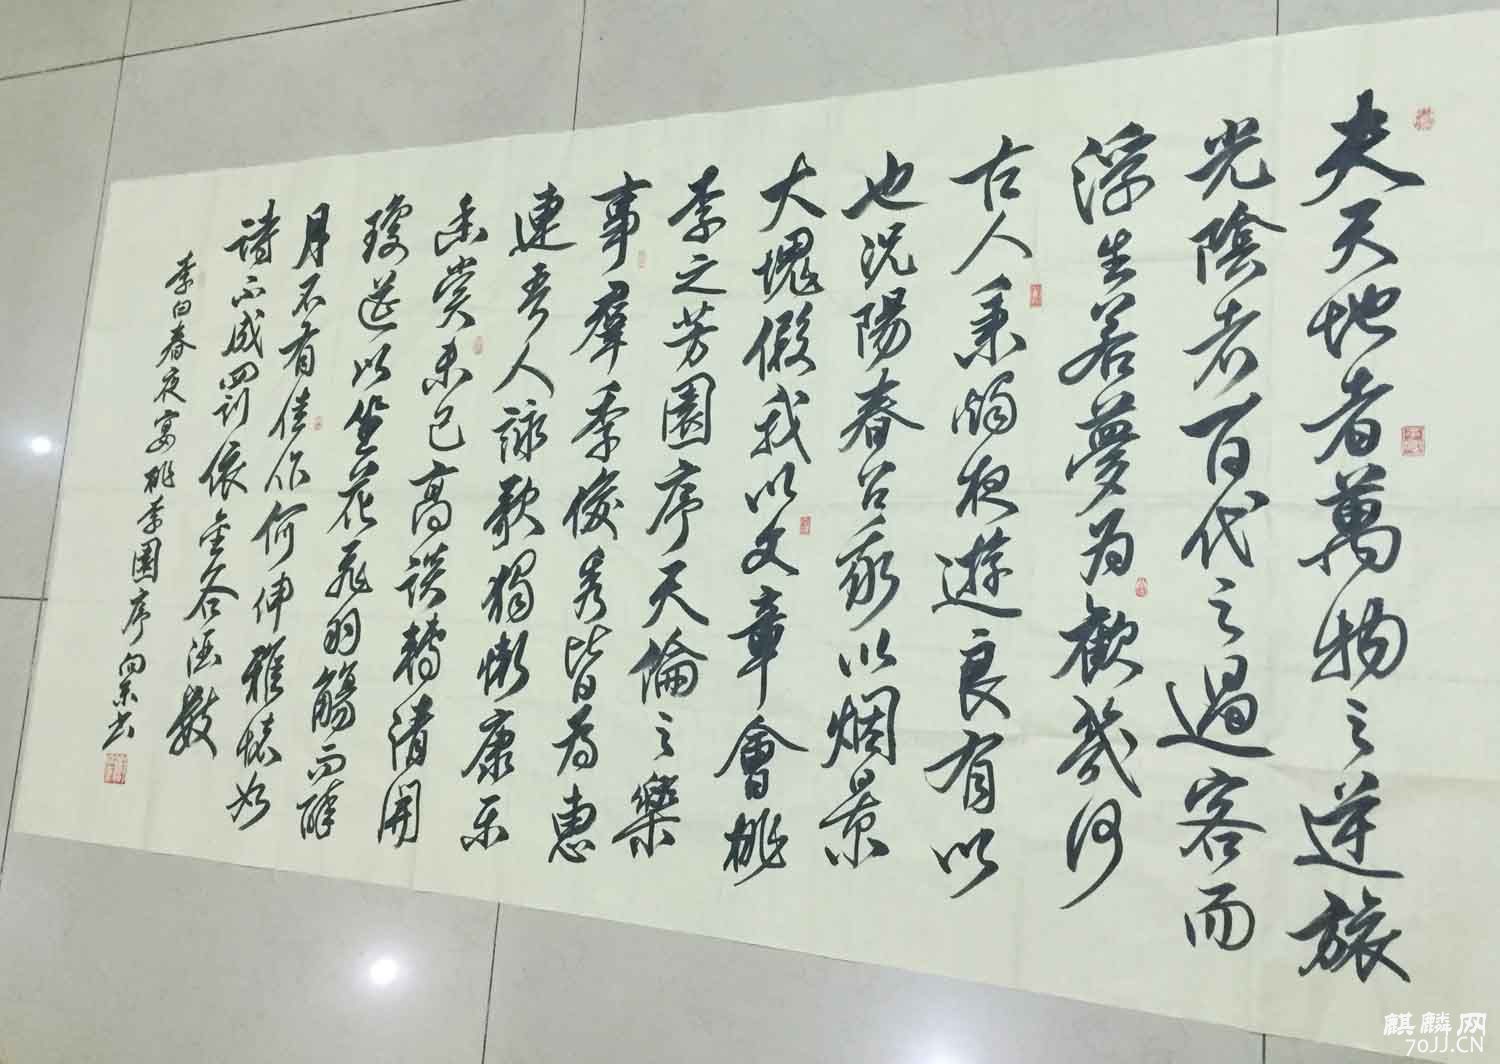 夫天地者萬物之逆旅
光陰者百代之過客而
浮生若夢为歡幾何
古人秉燭夜遊良有以
也況陽春召我以烟景
大塊假我以文章會桃
李之芳園序天倫之樂
事羣季俊秀皆为惠
連吾人詠歌獨慚康乐
幽賞未已高談轉清開
瓊筵以坐花飛羽觴而醉
月不有佳作何伸雅懷如
詩不成罰依金谷酒數
李白春夜宴桃李園序向东书
麒麟网
70JJ.CN